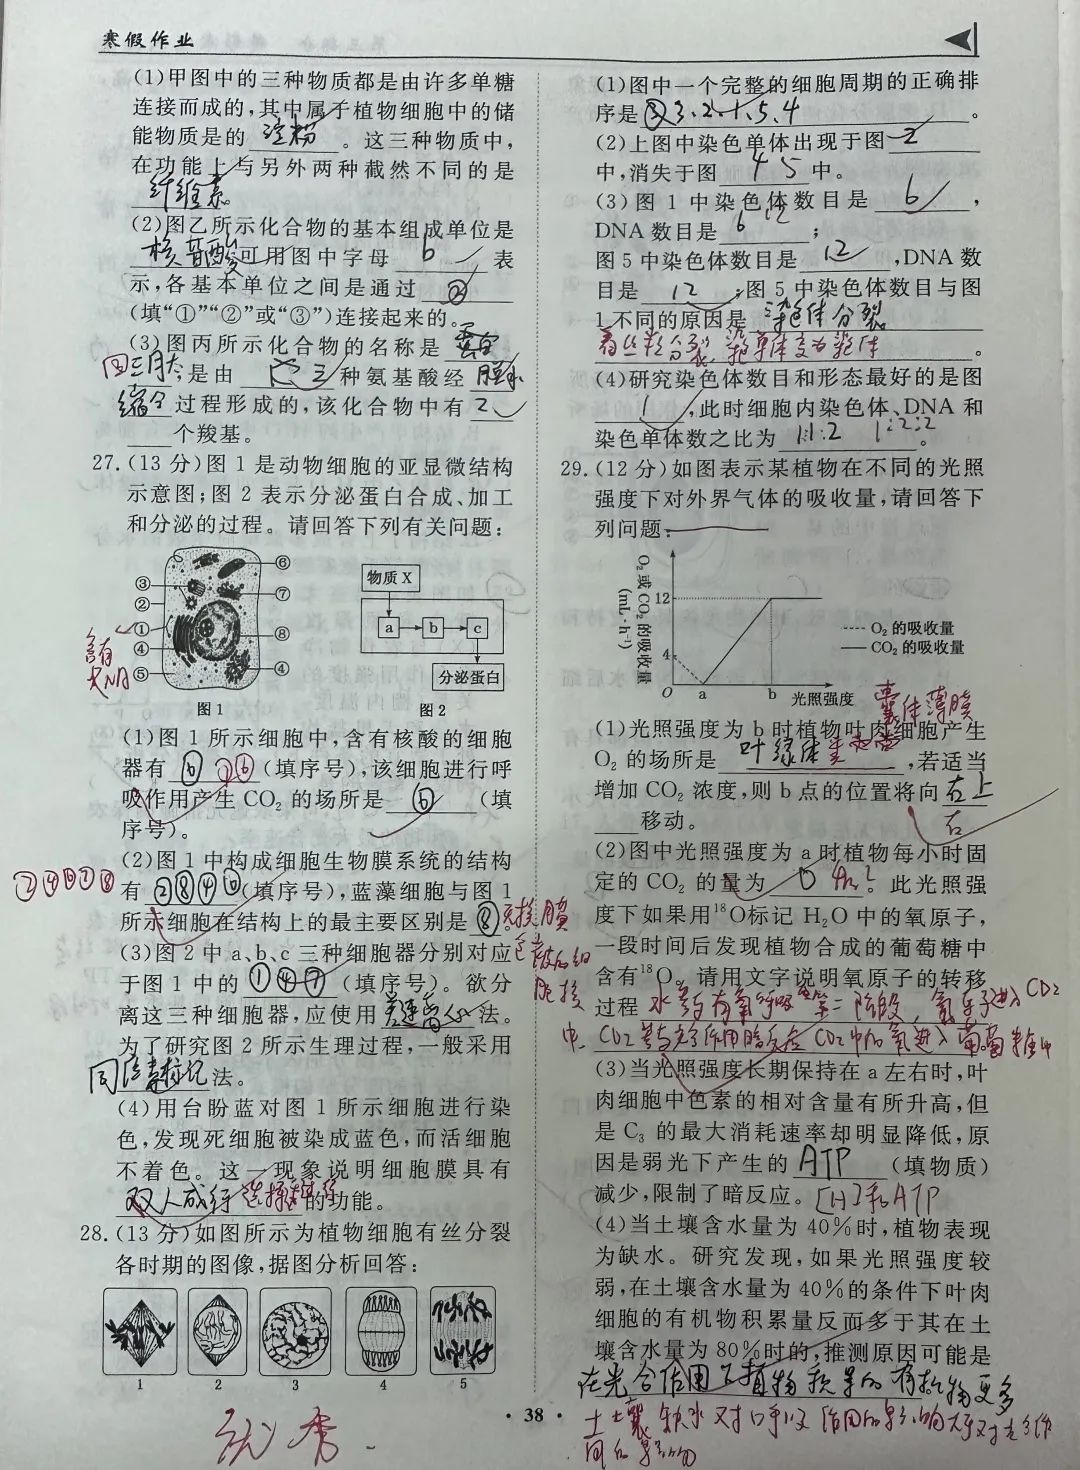 寒假作业
(1)甲图中的三种物质都是由许多单糖
连接而成的,其中属于植物细胞中的储
能物质是的 淀粉 。这三种物质中,
在功能上与另外两种截然不同的是
纤维素。
(2)图乙所示化合物的基本组成单位是
核苷酸 可用图中字母 b 表
示,各基本单位之间是通过 ②
(填“①”“②”或“③”)连接起来的。
(3)图丙所示化合物的名称是
四三肽;是由 三 种氨基酸经 脱水
缩合 过程形成的,该化合物中有 2
个羧基。
27.(13 分)图 1 是动物细胞的亚显微结构
示意图;图 2 表示分泌蛋白合成、加工
和分泌的过程。请回答下列有关问题:
③ ② ① ④ ⑤ ⑥ ⑦ ⑧ ④
含有
物质 X
a b c
分泌蛋白
图 1 图 2
(1)图 1 所示细胞中,含有核酸的细胞
器有 ⑥ ①⑥ (填序号),该细胞进行呼
吸作用产生 CO₂ 的场所是 ⑥ (填
序号)。
(2)图 1 中构成细胞生物膜系统的结构
有 ②⑧④⑥ (填序号),蓝藻细胞与图 1
所示细胞在结构上的最主要区别是 ⑧ 。无核膜
包被的细
胞核
(3)图 2 中 a、b、c 三种细胞器分别对应
于图 1 中的 ①④⑦ (填序号)。欲分
离这三种细胞器,应使用 差速离心 法。
为了研究图 2 所示生理过程,一般采用
同位素标记 法。
(4)用台盼蓝对图 1 所示细胞进行染
色,发现死细胞被染成蓝色,而活细胞
不着色。这一现象说明细胞膜具有
选择透过性 的功能。
28.(13 分)如图所示为植物细胞有丝分裂
各时期的图像,据图分析回答:
1 2 3 4 5
优秀
(1)图中一个完整的细胞周期的正确排
序是 3、2、1、5、4 。
(2)上图中染色单体出现于图 2
中,消失于图 5 中。
(3)图 1 中染色体数目是 6 ,
DNA 数目是 12 ;
图 5 中染色体数目是 12 ,DNA 数
目是 12 ;图 5 中染色体数目与图
1 不同的原因是 染色体分裂
着丝粒分裂,染色单体变为染色体 。
(4)研究染色体数目和形态最好的是图
1 ,此时细胞内染色体、DNA 和
染色单体数之比为 1:1:2 1:2:2 。
29.(12 分)如图表示某植物在不同的光照
强度下对外界气体的吸收量,请回答下
列问题:
O₂ 或 CO₂ 的吸收量
(mL·h⁻¹)
12
4
O a b 光照强度
O₂ 的吸收量
CO₂ 的吸收量
囊体薄膜
(1)光照强度为 b 时植物叶肉细胞产生
O₂ 的场所是 叶绿体类 ,若适当
增加 CO₂ 浓度,则 b 点的位置将向 右上
右 移动。
(2)图中光照强度为 a 时植物每小时固
定的 CO₂ 的量为 0 4mL。此光照强
度下如果用¹⁸O标记 H₂O 中的氧原子,
一段时间后发现植物合成的葡萄糖中
含有¹⁸O。请用文字说明氧原子的转移
过程 水参与有氧呼吸第二阶段,氧原子进入CO2
中,CO2参与光合作用暗反应 CO2中的氧进入葡萄糖中
(3)当光照强度长期保持在 a 左右时,叶
肉细胞中色素的相对含量有所升高,但
是 C₃ 的最大消耗速率却明显降低,原
因是弱光下产生的 ATP (填物质)
减少,限制了暗反应。[H]和ATP
(4)当土壤含水量为 40%时,植物表现
为缺水。研究发现,如果光照强度较
弱,在土壤含水量为 40%的条件下叶肉
细胞的有机物积累量反而多于其在土
壤含水量为 80%时的,推测原因可能是
在光合作用下植物积累的有机物更多
土壤缺水对呼吸作用的影响大于对光合作
用的影响
· 38 ·